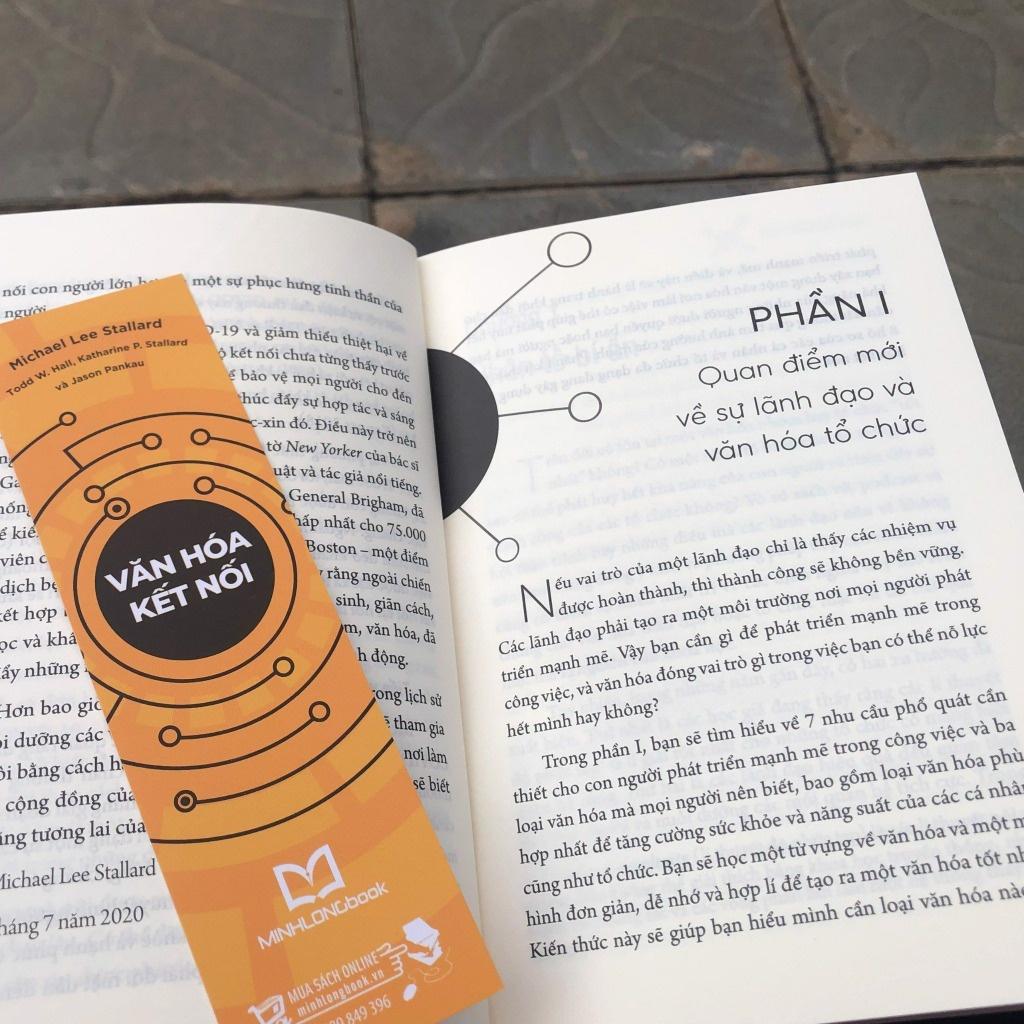 nối con người lớn một sự phục hưng tinh thần của
người
-19 và giảm thiểu thiệt hại về
kết nối chưa từng thấy trước
bảo vệ mọi người cho đến
thúc đẩy sự hợp tác và sáng
c-xin đó. Điều này trở nên
tờ New Yorker của bác sĩ
uật và tác giả nổi tiếng.
General Brigham, đã
hấp nhất cho 75.000
viên Boston – một điểm
dịch rằng ngoài chiến
kết hợp sinh, giãn cách,
ọc và m, văn hóa, đã
ẩy những h động.
Hơn bao rong lịch sử
ồi dưỡng các tham gia
ôi bằng cách nơi làm
cộng đồng của sẽ biết
ng tương lai của
Michael Lee Stallard
háng 7 năm 2020
Michael Lee Stallard
Todd W. Hall, Katharine P. Stallard
và Jason Pankau
VĂN HÓA
KẾT NỐI
MINHLONGbook
MUA SÁCH ONLINE
minhlongbook.vn
849 396
PHẦN I
Quan điểm mới
về sự lãnh đạo và
văn hóa tổ chức
Nếu vai trò của một lãnh đạo chỉ là thấy các nhiệm vụ
được hoàn thành, thì thành công sẽ không bền vững.
Các lãnh đạo phải tạo ra một môi trường nơi mọi người phát
triển mạnh mẽ. Vậy bạn cần gì để phát triển mạnh mẽ trong
công việc, và văn hóa đóng vai trò gì trong việc bạn có thể nỗ lực
hết mình hay không?
Trong phần I, bạn sẽ tìm hiểu về 7 nhu cầu phổ quát cần
thiết cho con người phát triển mạnh mẽ trong công việc và ba
loại văn hóa mà mọi người nên biết, bao gồm loại văn hóa phù
hợp nhất để tăng cường sức khỏe và năng suất của các cá nhân
cũng như tổ chức. Bạn sẽ học một từ vựng về văn hóa và một m
hình đơn giản, dễ nhớ và hợp lí để tạo ra một văn hóa tốt nh
Kiến thức này sẽ giúp bạn hiểu mình cần loại văn hóa nào